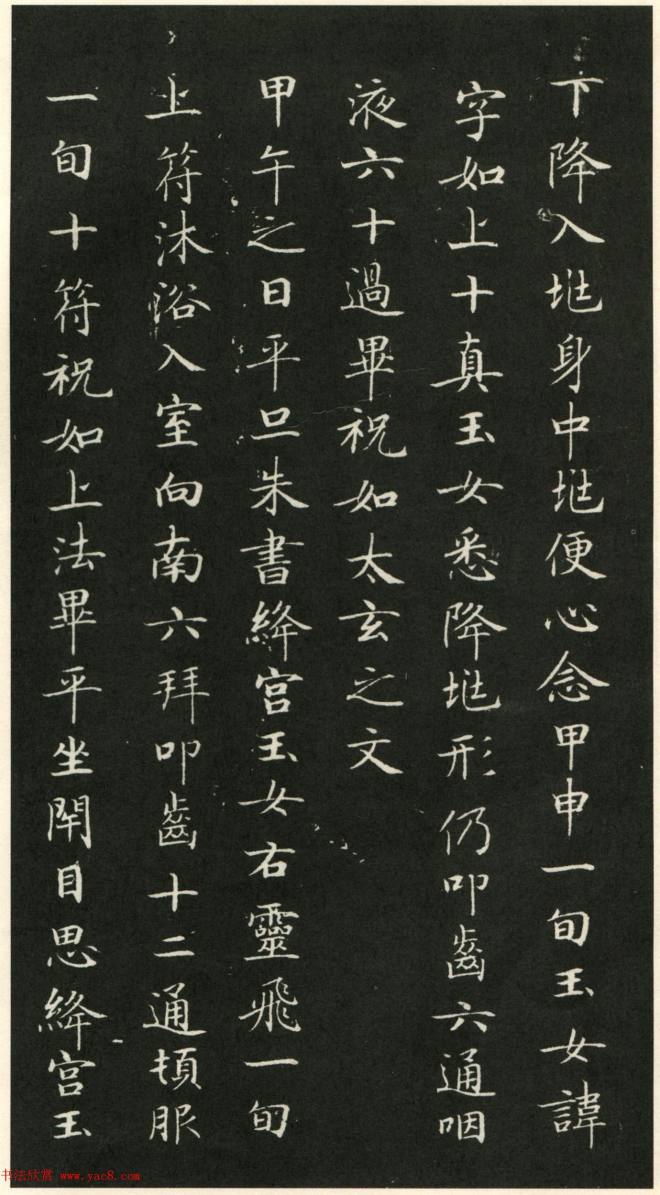 下降入兆身中兆便心念甲申一旬玉女諱
字如上十真玉女悉降兆形仍叩齒六通咽
液六十過畢祝如太玄之文
甲午之日平旦朱書絳宮玉女右靈飛一旬
上符沐浴入室向南六拜叩齒十二通頓服
一旬十符祝如上法畢平坐閉目思絳宮玉
书法欣赏 www.yac8.com